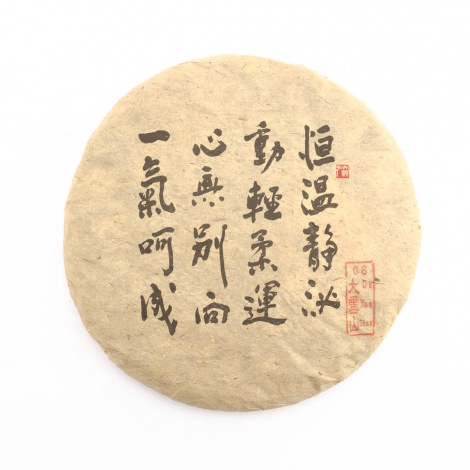 恒温静泌
動輕柔運
心無別向
一氣呵成
06
Da
Xue
Shan
大雪山